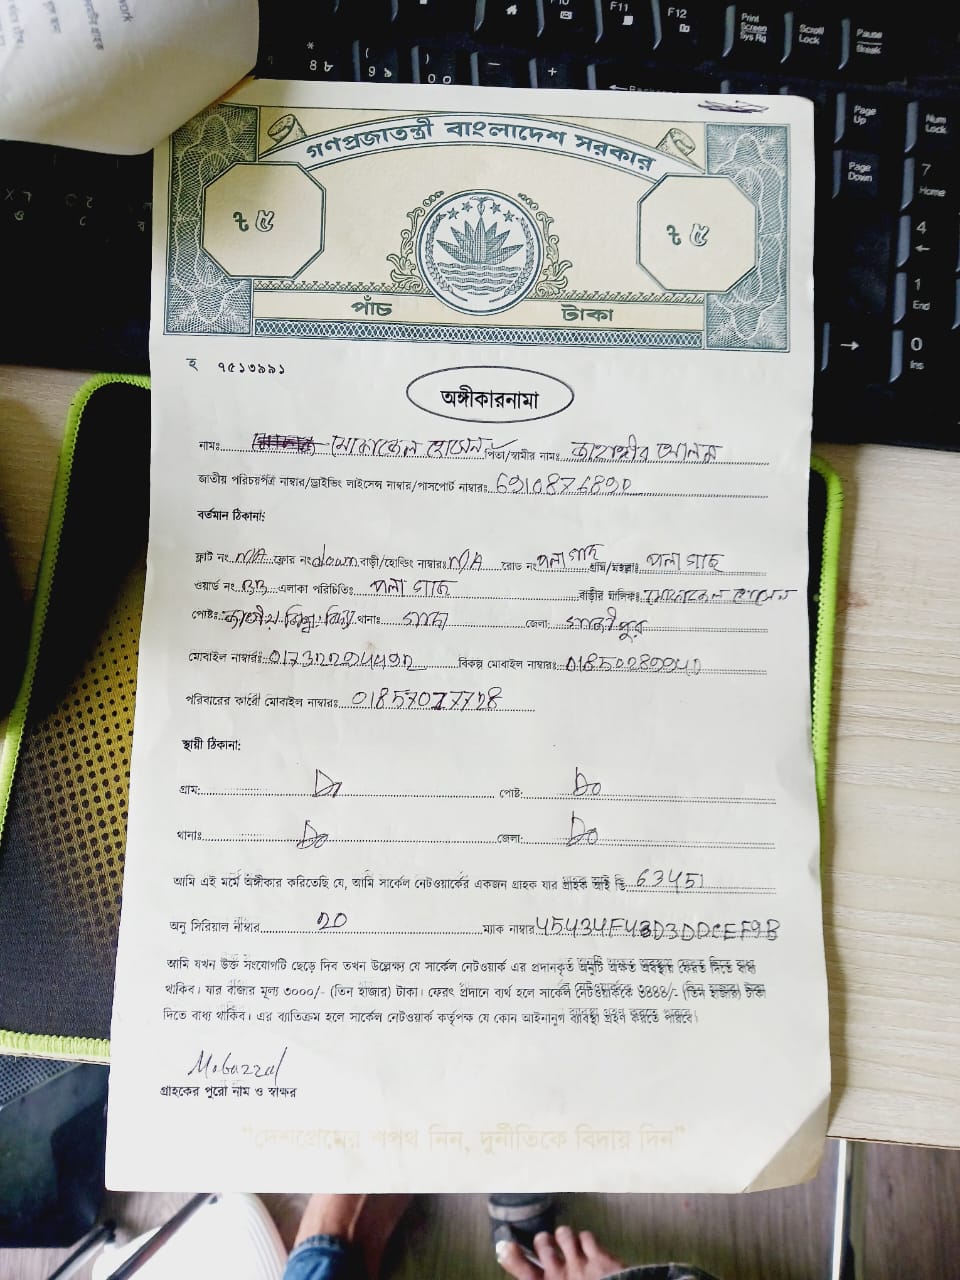 গণপ্রজাতন্ত্রী বাংলাদেশ সরকার
৳ ৫
৳ ৫
পাঁচ টাকা
হ ৭৫১৩৯৯১
অঙ্গীকারনামা
নামঃ মোকাজ্জেল হোসেন পিতা/স্বামীর নামঃ জাহাঙ্গীর আলম
জাতীয় পরিচয়পত্র নাম্বার/ড্রাইভিং লাইসেন্স নাম্বার/পাসপোর্ট নাম্বারঃ
বর্তমান ঠিকানা:
ফ্লাট নং N/A ফ্লোর নং down বাড়ী/হোল্ডিং নাম্বারঃ N/A রোড নং পলাগাছ গ্রাম/মহল্লাঃ পলাগাছ
ওয়ার্ড নং এলাকা পরিচিতিঃ পলাগাছ বাড়ীর মালিকঃ হোসেন
পোষ্টঃ জাতীয় বিশ্ব বিদ্যা থানাঃ গাছা জেলা: গাজীপুর
মোবাইল নাম্বারঃ বিকল্প মোবাইল নাম্বারঃ
পরিবারের কারো মোবাইল নাম্বারঃ
স্থায়ী ঠিকানা:
গ্রাম: Do পোষ্ট: Do
থানাঃ Do জেলা: Do
আমি এই মর্মে অঙ্গীকার করিতেছি যে, আমি সার্কেল নেটওয়ার্কের একজন গ্রাহক যার গ্রাহক আই ডি 63451
অনু সিরিয়াল নাম্বার 20 ম্যাক নাম্বার 45434F4BD3DDCEF9B
আমি যখন উক্ত সংযোগটি ছেড়ে দিব তখন উল্লেক্ষ্য যে সার্কেল নেটওয়ার্ক এর প্রদানকৃত অনুটি অক্ষত অবস্থায় ফেরত দিতে বাধ্য
থাকিব। যার বাজার মূল্য ৩০০০/- (তিন হাজার) টাকা। ফেরৎ প্রদানে ব্যর্থ হলে সার্কেল নেটওয়ার্ককে ৩০০০/- (তিন হাজার) টাকা
দিতে বাধ্য থাকিব। এর ব্যাতিক্রম হলে সার্কেল নেটওয়ার্ক কর্তৃপক্ষ যে কোন আইনানুগ ব্যবস্থা গ্রহন করতে পারবে।
গ্রাহকের পুরো নাম ও স্বাক্ষর
"দেশপ্রেমের শপথ নিন, দুর্নীতিকে বিদায় দিন"
F11
F12
Print Screen Sys Rq
Scroll Lock
Pause Break
Page Up
Page Down
Num Lock
7 Home
4
1 End
0 Ins